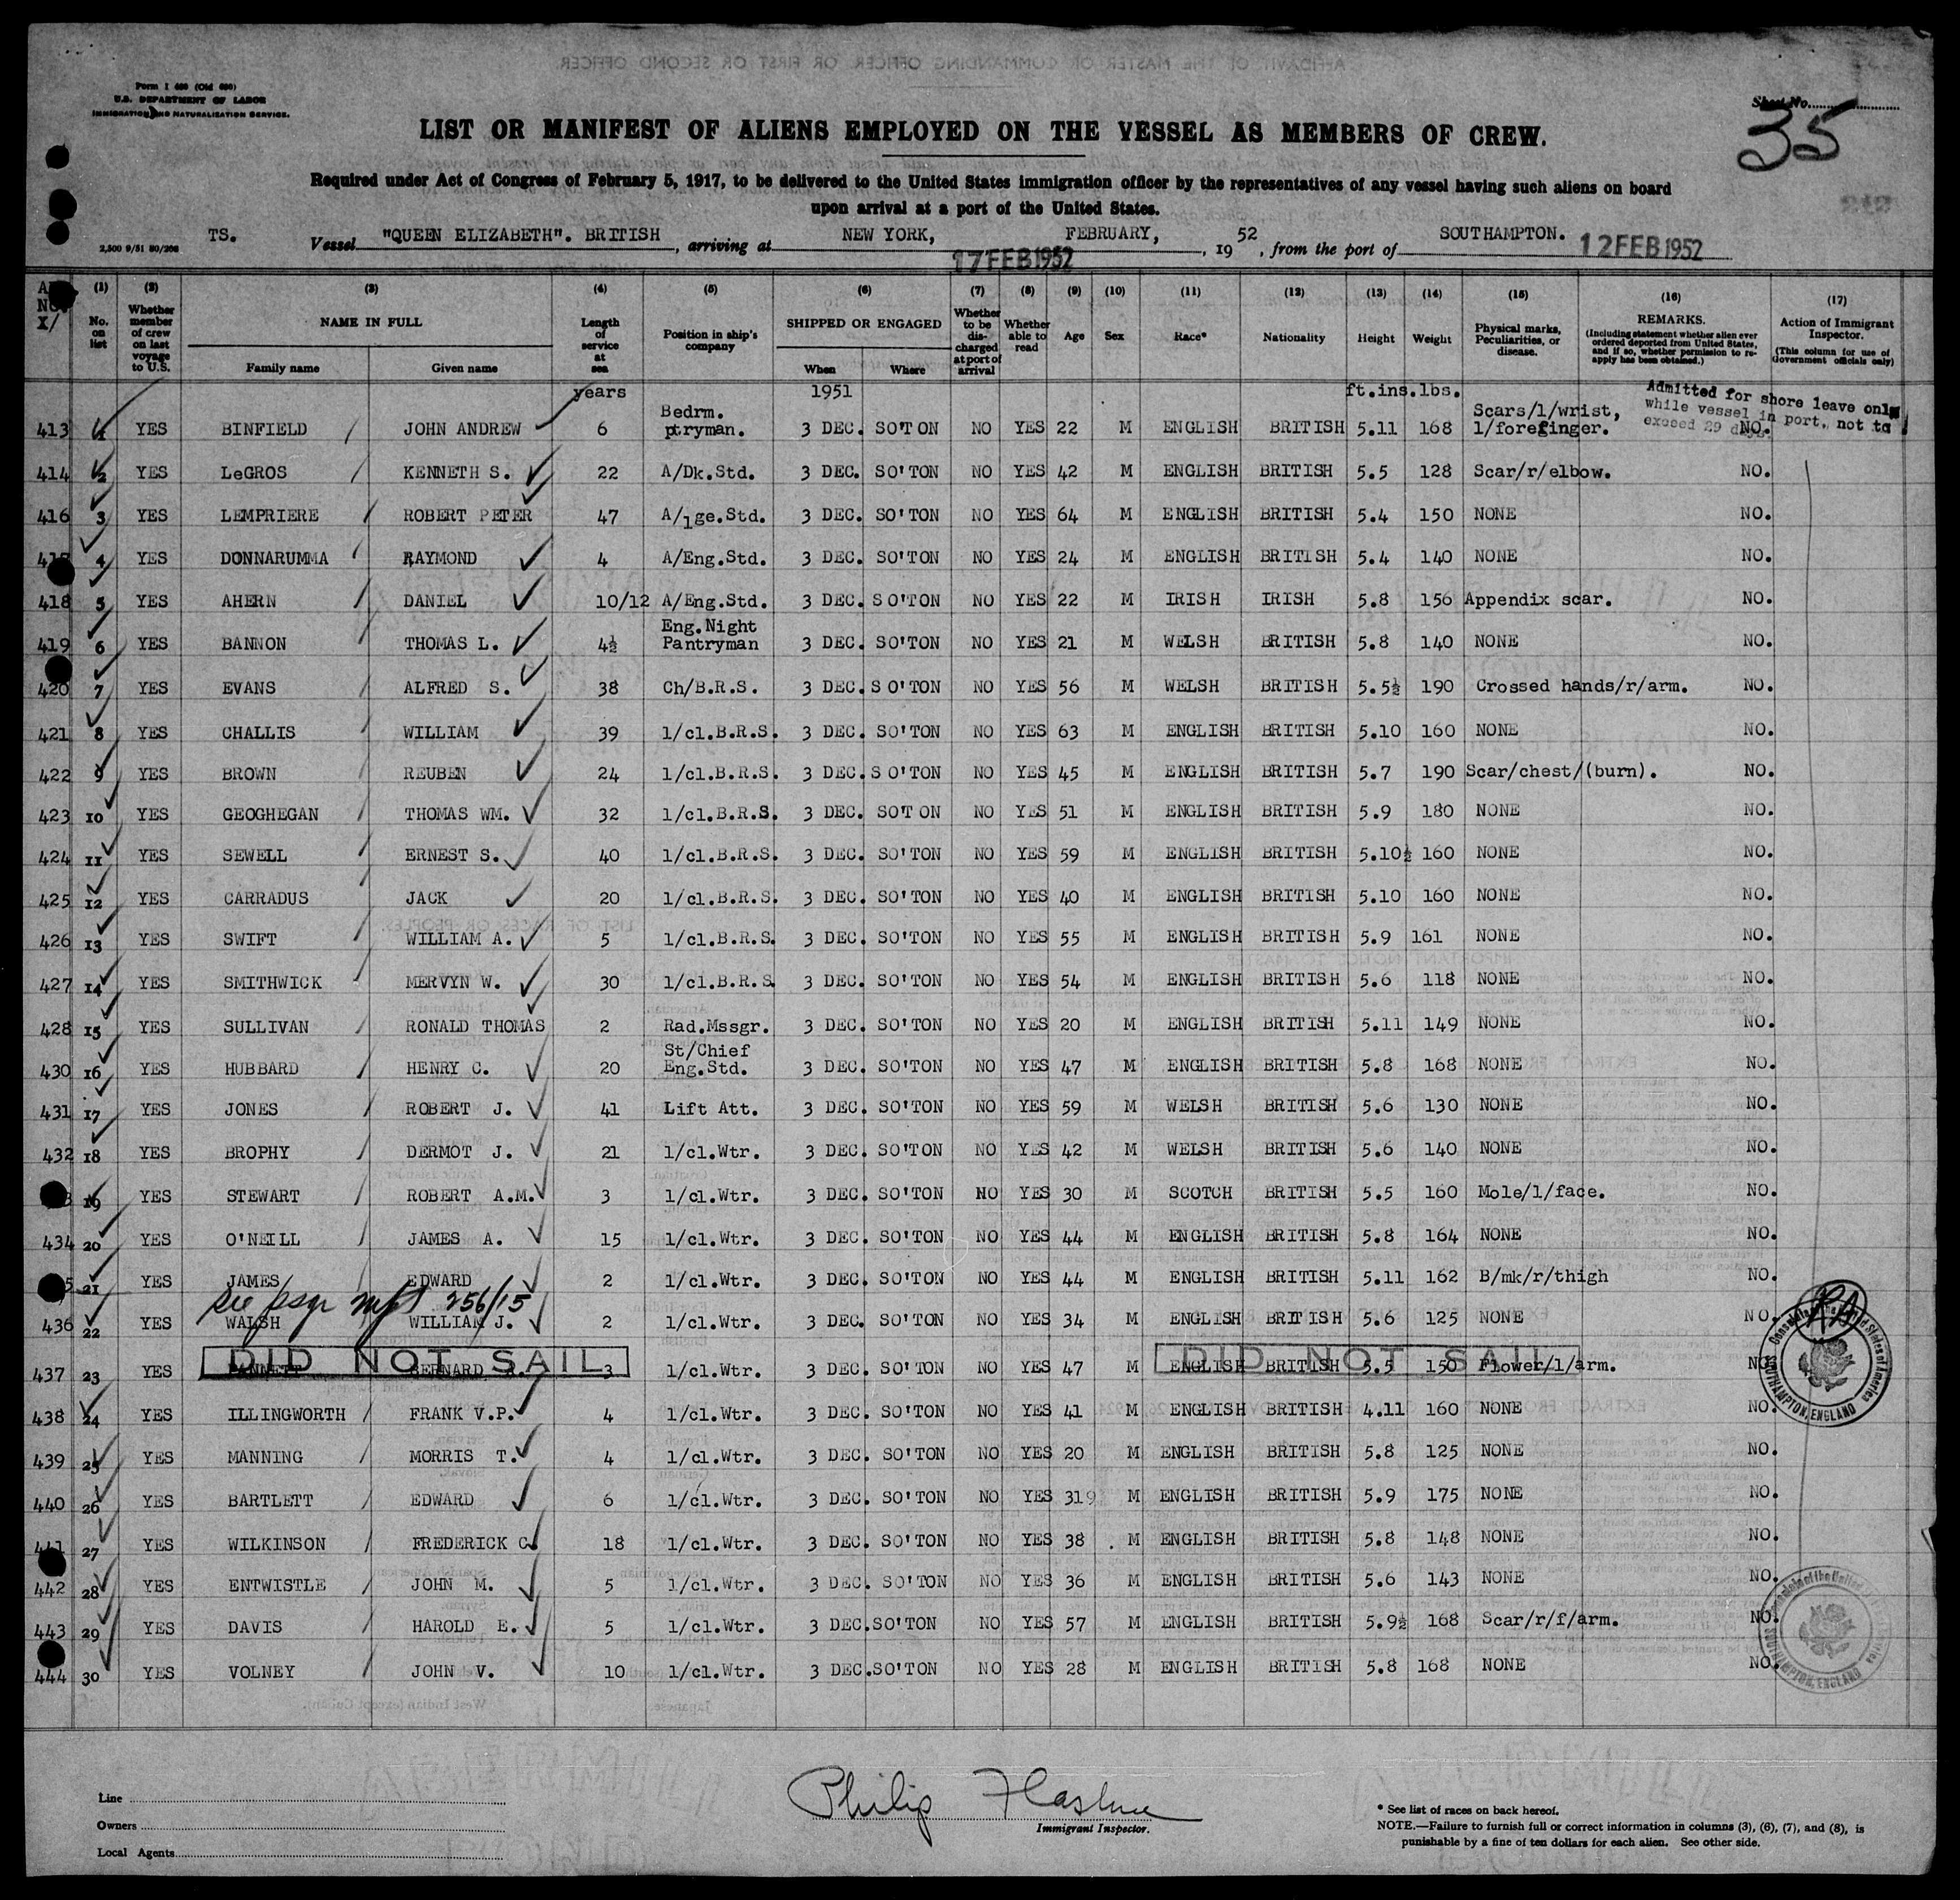 Form I 489 (Old 680)
U.S. DEPARTMENT OF LABOR
IMMIGRATION AND NATURALIZATION SERVICE.
Sheet No.
35
LIST OR MANIFEST OF ALIENS EMPLOYED ON THE VESSEL AS MEMBERS OF CREW.
Required under Act of Congress of February 5, 1917, to be delivered to the United States immigration officer by the representatives of any vessel having such aliens on board
upon arrival at a port of the United States.
2,500 9/51 80/208
TS. Vessel "QUEEN ELIZABETH". BRITISH, arriving at NEW YORK, FEBRUARY, 1952, from the port of SOUTHAMPTON. 12 FEB 1952
17 FEB 1952
(1) (2) (3) (4) (5) (6) (7) (8) (9) (10) (11) (12) (13) (14) (15) (16) (17)
No. on list
Whether member of crew on last voyage to U.S.
NAME IN FULL
Family name Given name
Length of service at sea
Position in ship's company
SHIPPED OR ENGAGED
When Where
Whether to be discharged at port of arrival
Whether able to read
Age
Sex
Race*
Nationality
Height
Weight
Physical marks, Peculiarities, or disease.
REMARKS.
(Including statement whether alien ever ordered deported from United States, and if so, whether permission to re-apply has been obtained.)
Action of Immigrant Inspector.
(This column for use of Government officials only)
years 1951 ft.ins. lbs.
Admitted for shore leave only
while vessel in port, not to
exceed 29 days.
413 1 YES BINFIELD JOHN ANDREW 6 Bedrm. ptryman. 3 DEC. SO'T ON NO YES 22 M ENGLISH BRITISH 5.11 168 Scars/l/wrist, l/forefinger. NO.
414 2 YES LeGROS KENNETH S. 22 A/Dk.Std. 3 DEC. SO'TON NO YES 42 M ENGLISH BRITISH 5.5 128 Scar/r/elbow. NO.
416 3 YES LEMPRIERE ROBERT PETER 47 A/lge.Std. 3 DEC. SO'TON NO YES 64 M ENGLISH BRITISH 5.4 150 NONE NO.
417 4 YES DONNARUMMA RAYMOND 4 A/Eng.Std. 3 DEC. SO'TON NO YES 24 M ENGLISH BRITISH 5.4 140 NONE NO.
418 5 YES AHERN DANIEL 10/12 A/Eng.Std. 3 DEC. SO'TON NO YES 22 M IRISH IRISH 5.8 156 Appendix scar. NO.
419 6 YES BANNON THOMAS L. 4½ Eng.Night Pantryman 3 DEC. SO'TON NO YES 21 M WELSH BRITISH 5.8 140 NONE NO.
420 7 YES EVANS ALFRED S. 38 Ch/B.R.S. 3 DEC. SO'TON NO YES 56 M WELSH BRITISH 5.5½ 190 Crossed hands/r/arm. NO.
421 8 YES CHALLIS WILLIAM 39 1/cl.B.R.S. 3 DEC. SO'TON NO YES 63 M ENGLISH BRITISH 5.10 160 NONE NO.
422 9 YES BROWN REUBEN 24 1/cl.B.R.S. 3 DEC. SO'TON NO YES 45 M ENGLISH BRITISH 5.7 190 Scar/chest/(burn). NO.
423 10 YES GEOGHEGAN THOMAS WM. 32 1/cl.B.R.S. 3 DEC. SO'T ON NO YES 51 M ENGLISH BRITISH 5.9 180 NONE NO.
424 11 YES SEWELL ERNEST S. 40 1/cl.B.R.S. 3 DEC. SO'TON NO YES 59 M ENGLISH BRITISH 5.10½ 160 NONE NO.
425 12 YES CARRADUS JACK 20 1/cl.B.R.S. 3 DEC. SO'TON NO YES 40 M ENGLISH BRITISH 5.10 160 NONE NO.
426 13 YES SWIFT WILLIAM A. 5 1/cl.B.R.S. 3 DEC. SO'TON NO YES 55 M ENGLISH BRITISH 5.9 161 NONE NO.
427 14 YES SMITHWICK MERVYN W. 30 1/cl.B.R.S 3 DEC. SO'TON NO YES 54 M ENGLISH BRITISH 5.6 118 NONE NO.
428 15 YES SULLIVAN RONALD THOMAS 2 Rad.Mssgr. 3 DEC. SO'TON NO YES 20 M ENGLISH BRITISH 5.11 149 NONE NO.
430 16 YES HUBBARD HENRY C. 20 St/Chief Eng.Std. 3 DEC. SO'TON NO YES 47 M ENGLISH BRITISH 5.8 168 NONE NO.
431 17 YES JONES ROBERT J. 41 Lift Att. 3 DEC. SO'TON NO YES 59 M WELSH BRITISH 5.6 130 NONE NO.
432 18 YES BROPHY DERMOT J. 21 1/cl.Wtr. 3 DEC. SO'TON NO YES 42 M WELSH BRITISH 5.6 140 NONE NO.
19 YES STEWART ROBERT A.M. 3 1/cl.Wtr. 3 DEC. SO'TON NO YES 30 M SCOTCH BRITISH 5.5 160 Mole/l/face. NO.
434 20 YES O'NEILL JAMES A. 15 1/cl.Wtr. 3 DEC. SO'TON NO YES 44 M ENGLISH BRITISH 5.8 164 NONE NO.
21 YES JAMES EDWARD 2 1/cl.Wtr. 3 DEC. SO'TON NO YES 44 M ENGLISH BRITISH 5.11 162 B/mk/r/thigh NO.
see psgr mfst 256/15
436 22 YES WALSH WILLIAM J. 2 1/cl.Wtr. 3 DEC. SO'TON NO YES 34 M ENGLISH BRITISH 5.6 125 NONE NO.
437 23 YES BERNARD 3 1/cl.Wtr. 3 DEC. SO'TON NO YES 47 M ENGLISH BRITISH 5.5 150 Flower/l/arm. NO.
DID NOT SAIL DID NOT SAIL
438 24 YES ILLINGWORTH FRANK V.P. 4 1/cl.Wtr. 3 DEC. SO'TON NO YES 41 M ENGLISH BRITISH 4.11 160 NONE NO.
439 25 YES MANNING MORRIS T. 4 1/cl.Wtr. 3 DEC. SO'TON NO YES 20 M ENGLISH BRITISH 5.8 125 NONE NO.
440 26 YES BARTLETT EDWARD 6 1/cl.Wtr. 3 DEC. SO'TON NO YES 319 M ENGLISH BRITISH 5.9 175 NONE NO.
441 27 YES WILKINSON FREDERICK C. 18 1/cl.Wtr. 3 DEC. SO'TON NO YES 38 M ENGLISH BRITISH 5.8 148 NONE NO.
442 28 YES ENTWISTLE JOHN M. 5 1/cl.Wtr. 3 DEC. SO'TON NO YES 36 M ENGLISH BRITISH 5.6 143 NONE NO.
443 29 YES DAVIS HAROLD E. 5 1/cl.Wtr. 3 DEC.SO'TON NO YES 57 M ENGLISH BRITISH 5.9½ 168 Scar/r/f/arm. NO.
444 30 YES VOLNEY JOHN V. 10 1/cl.Wtr. 3 DEC.SO'TON NO YES 28 M ENGLISH BRITISH 5.8 168 NONE NO.
Consulate of the United States of America
SOUTHAMPTON, ENGLAND
Line
Owners
Local Agents
Philip
Immigrant Inspector.
* See list of races on back hereof.
NOTE.—Failure to furnish full or correct information in columns (3), (6), (7), and (8), is
punishable by a fine of ten dollars for each alien. See other side.